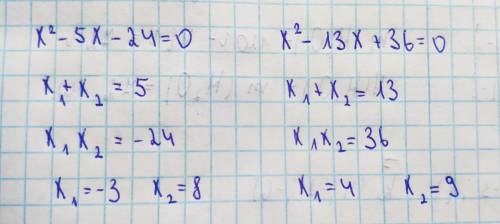 x² - 5x - 24 = 0
x₁ + x₂ = 5
x₁ x₂ = -24
x₁ = -3 x₂ = 8
x² - 13x + 36 = 0
x₁ + x₂ = 13
x₁ x₂ = 36
x₁ = 4 x₂ = 9